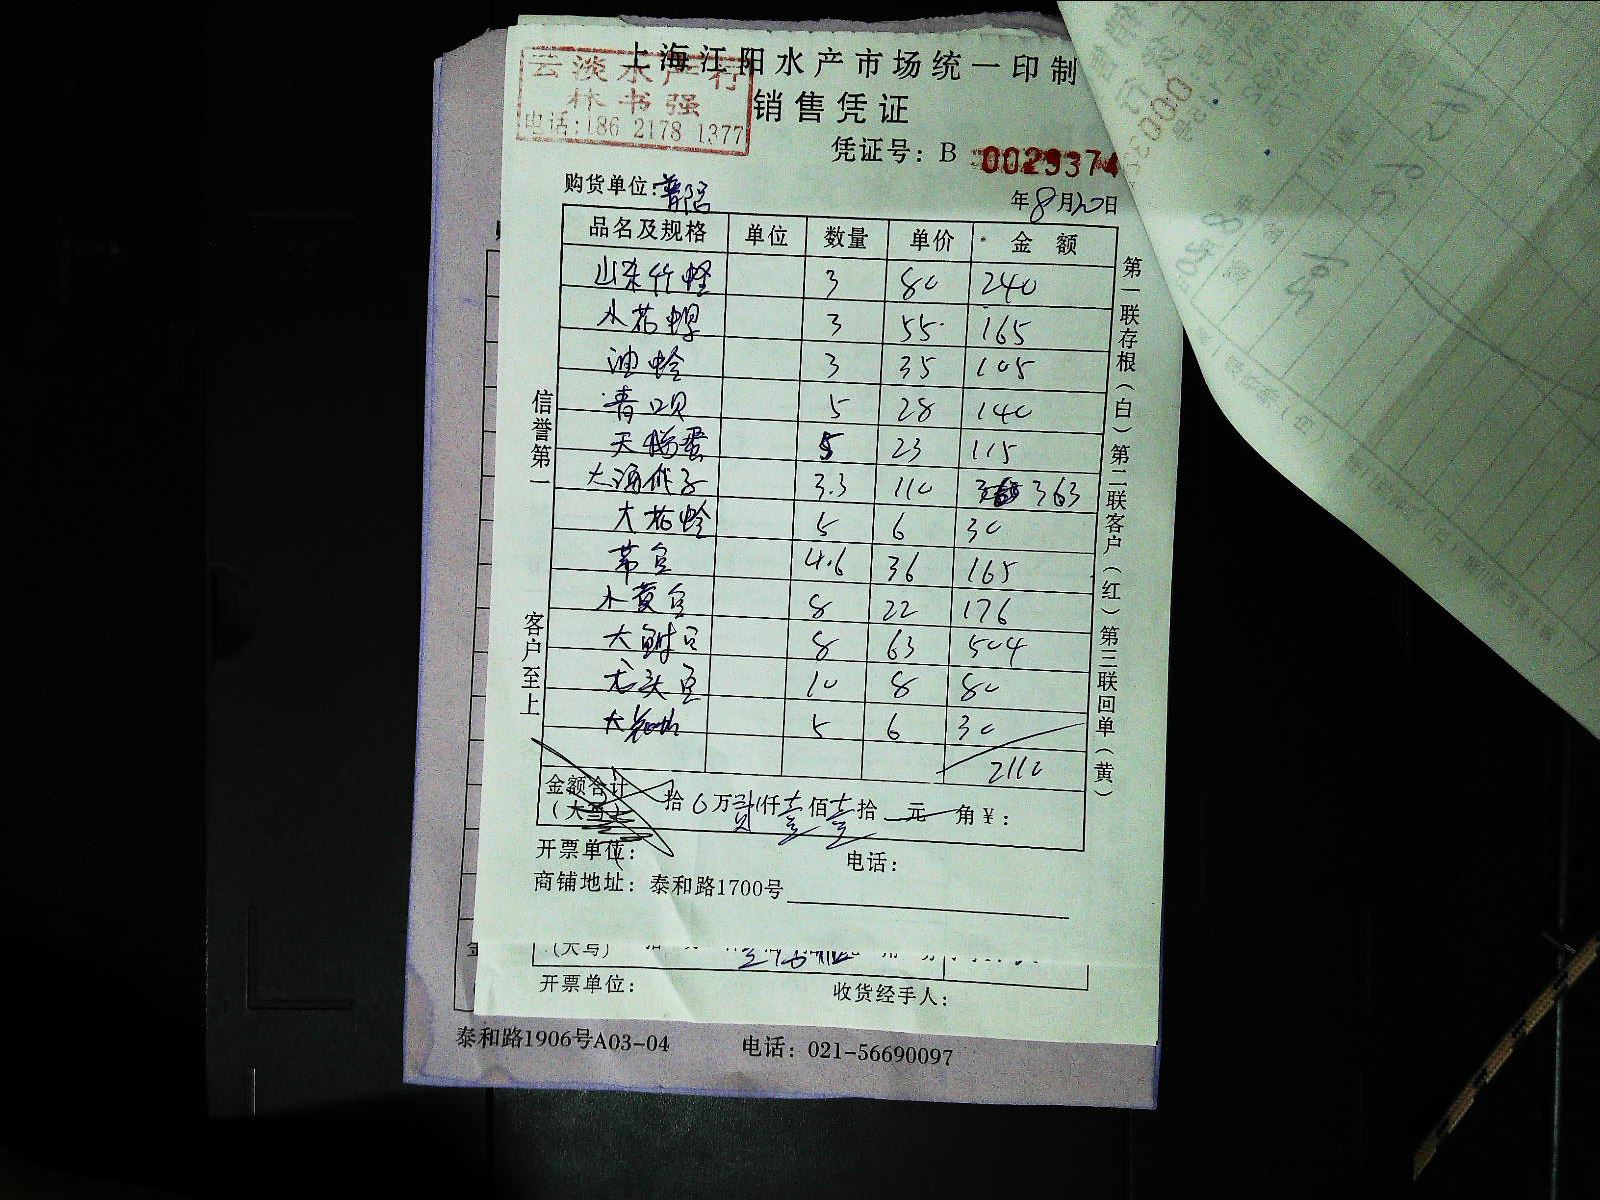 上海江阳水产市场统一印制
云淡水产行
林书强
电话:186 2178 1377
销售凭证
凭证号: B 0029374
购货单位:普陀
年8月20日
品名及规格 单位 数量 单价 金额
山东竹蛏 3 80 240
小花螺 3 55 165
油蛤 3 35 105
青口贝 5 28 140
天鹅蛋 5 23 115
大海 子 3.3 110 363
大花蛤 5 6 30
4.6 36 165
小黄 8 22 176
大 8 63 504
头 10 8 80
大花蛤 5 6 30
2110
金额合计
(大写) 拾 0 万 贰 仟 壹 佰 壹 拾 元 角 ¥:
开票单位: 电话:
商铺地址: 泰和路1700号
信誉第一
客户至上
第一联存根(白)第二联客户(红)第三联回单(黄)
(大写)
开票单位: 收货经手人:
泰和路1906号A03-04 电话: 021-56690097